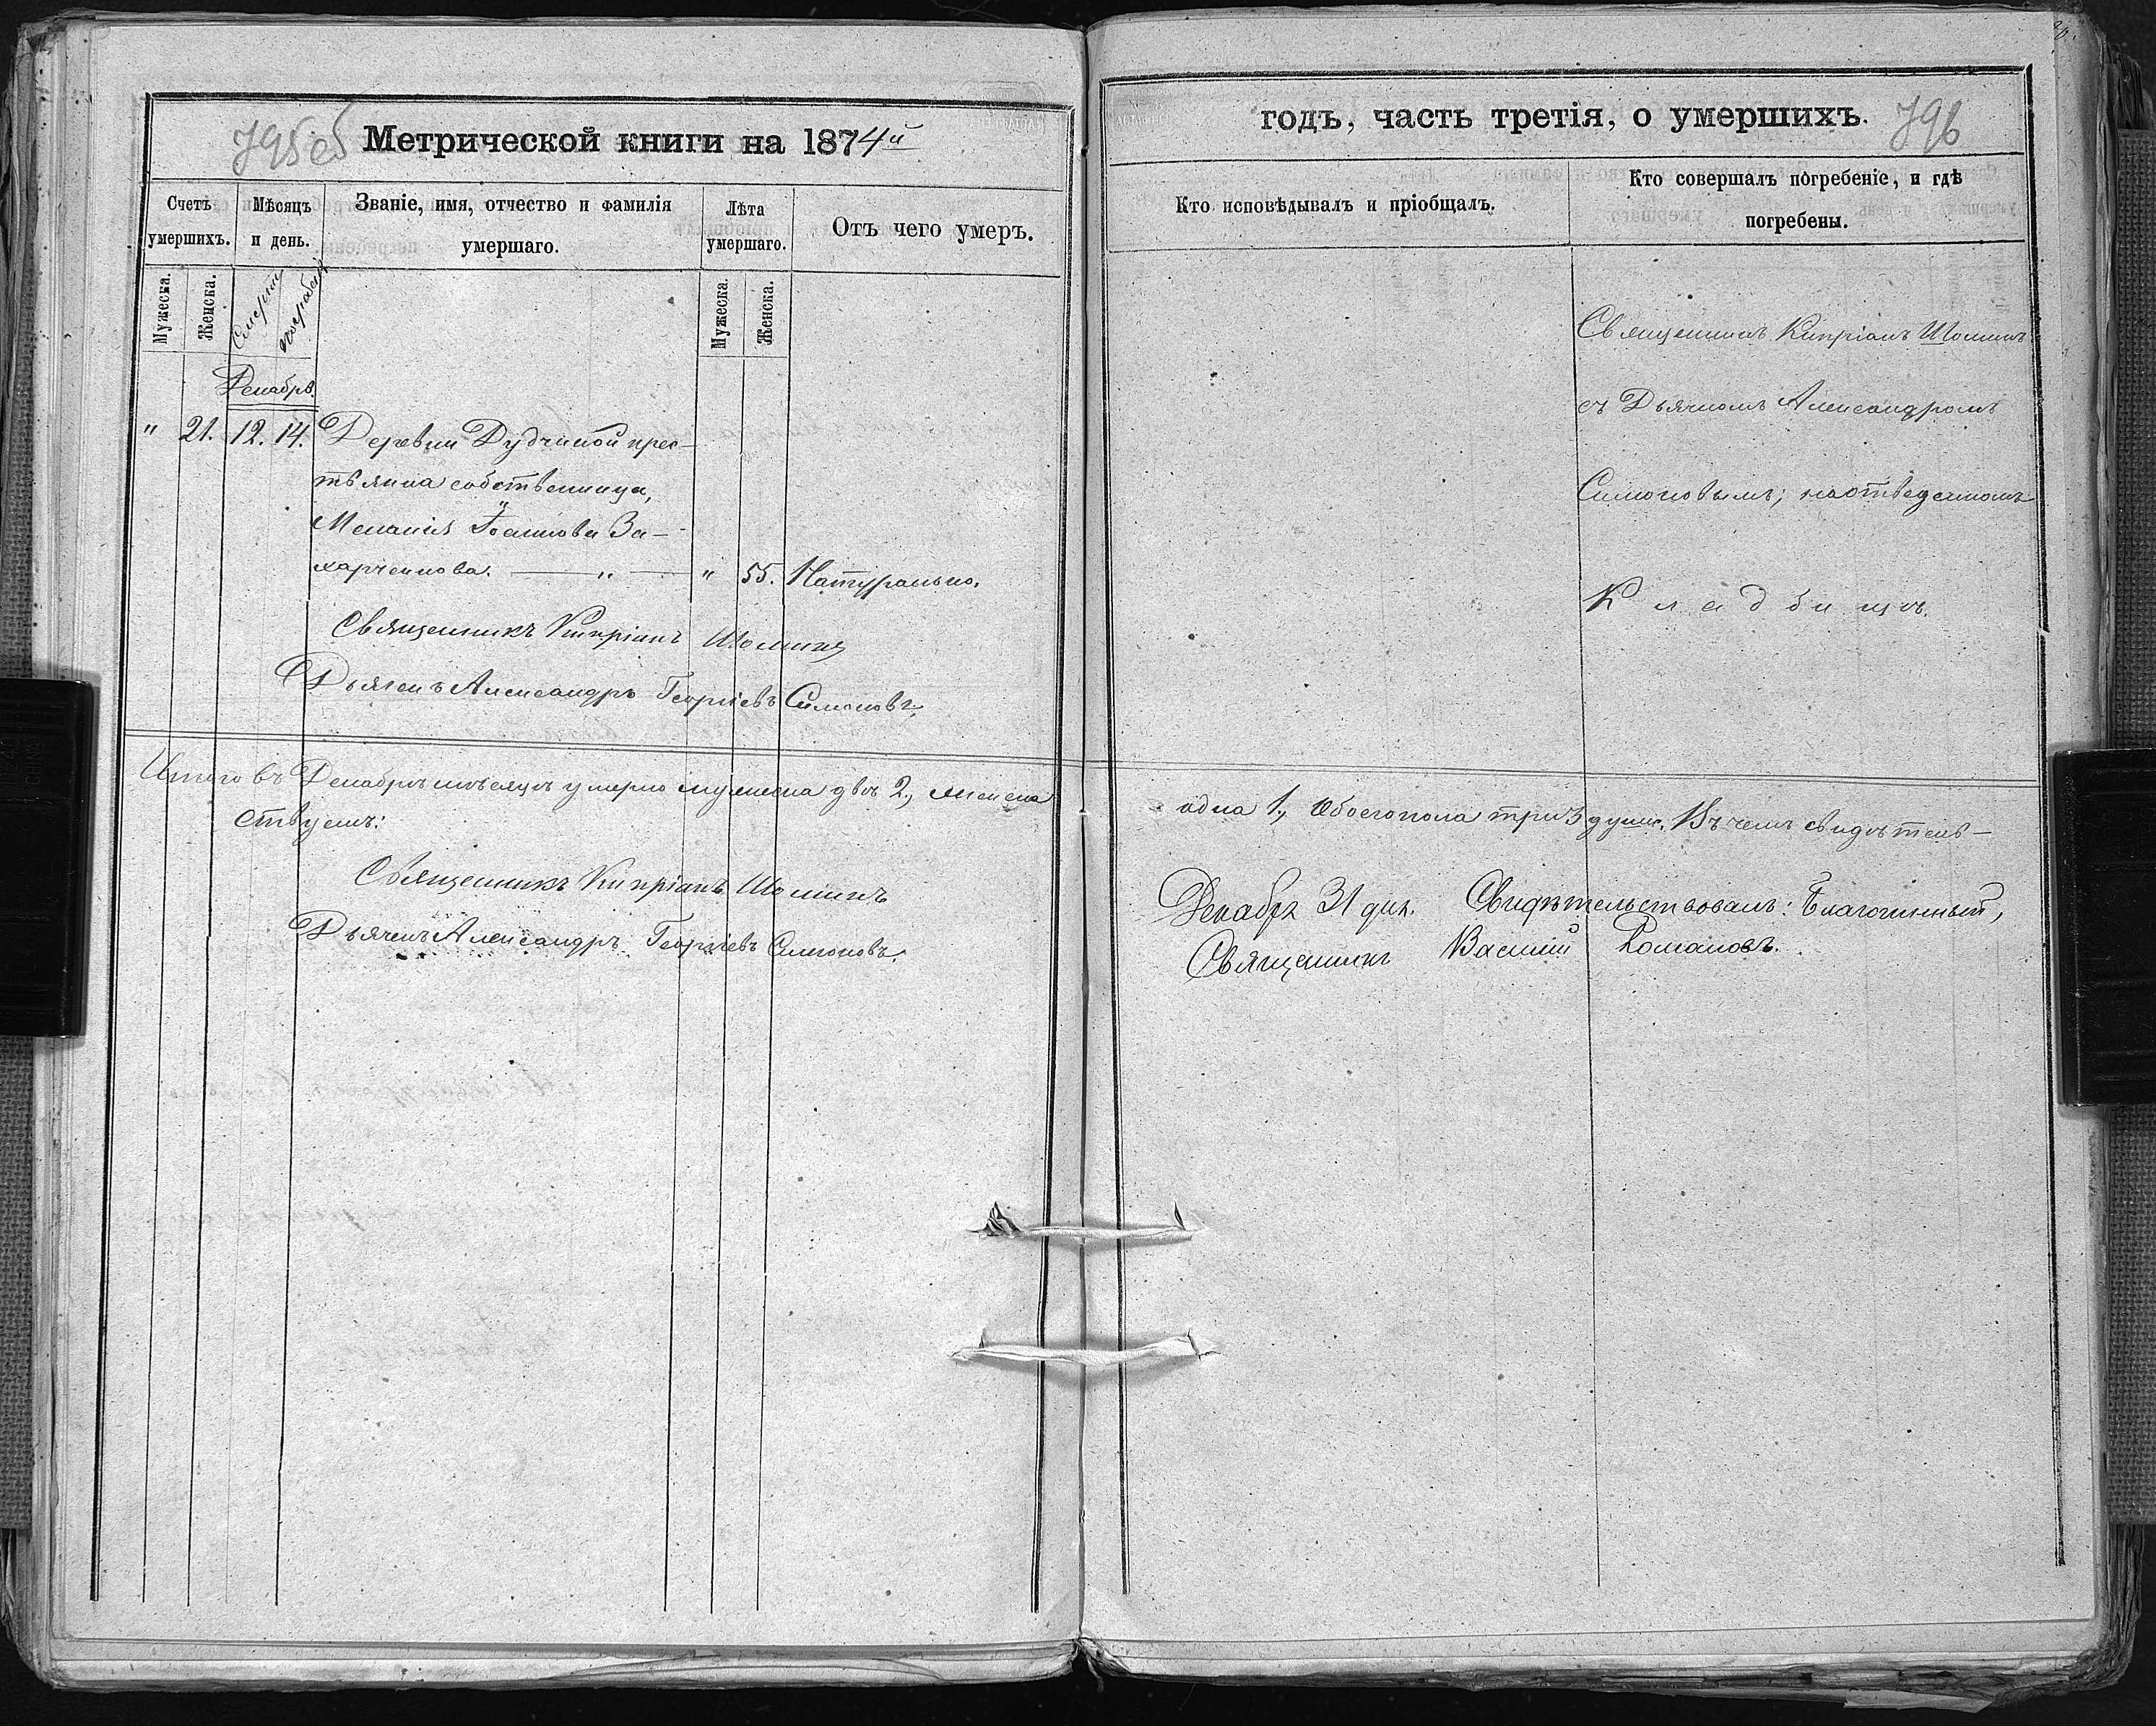 795об
Метрической книги на 1874й
Счетъ умершихъ.
Мѣсяцъ и день.
Званіе, имя, отчество и фамилія умершаго.
Лѣта умершаго.
Отъ чего умеръ.
Мужеска.
Женска.
Смерти
погребен
Мужеска.
Женска.
Декабрь.
" 21. 12. 14. Деревни Дудчиной крес-
тьянка собственница,
Меланія Іоаннова За-
харченкова. — " — " 55. Натурально.
Священникъ Кипріанъ Шоминъ
Дьячекъ Александръ Георгіевъ Симоновъ.
Итого въ Декабрѣ мѣсяцѣ умерло мужеска двѣ 2., женска
ствуемъ:
Священникъ Кипріанъ Шоминъ
Дьячекъ Александръ Георгіевъ Симоновъ.
годъ, часть третія, о умершихъ.
796
Кто исповѣдывалъ и пріобщалъ.
Кто совершалъ погребеніе, и гдѣ погребены.
Священникъ Кипріанъ Шоминъ
съ Дьячкомъ Александромъ
Симоновымъ; на отведенномъ
Кладбищѣ.
одна 1., Обоего пола три 3 души. Въ чемъ свидѣтель-
Декабря 31 дня. Свидѣтельствовалъ: Благочинный,
Священникъ Василій Романовъ.